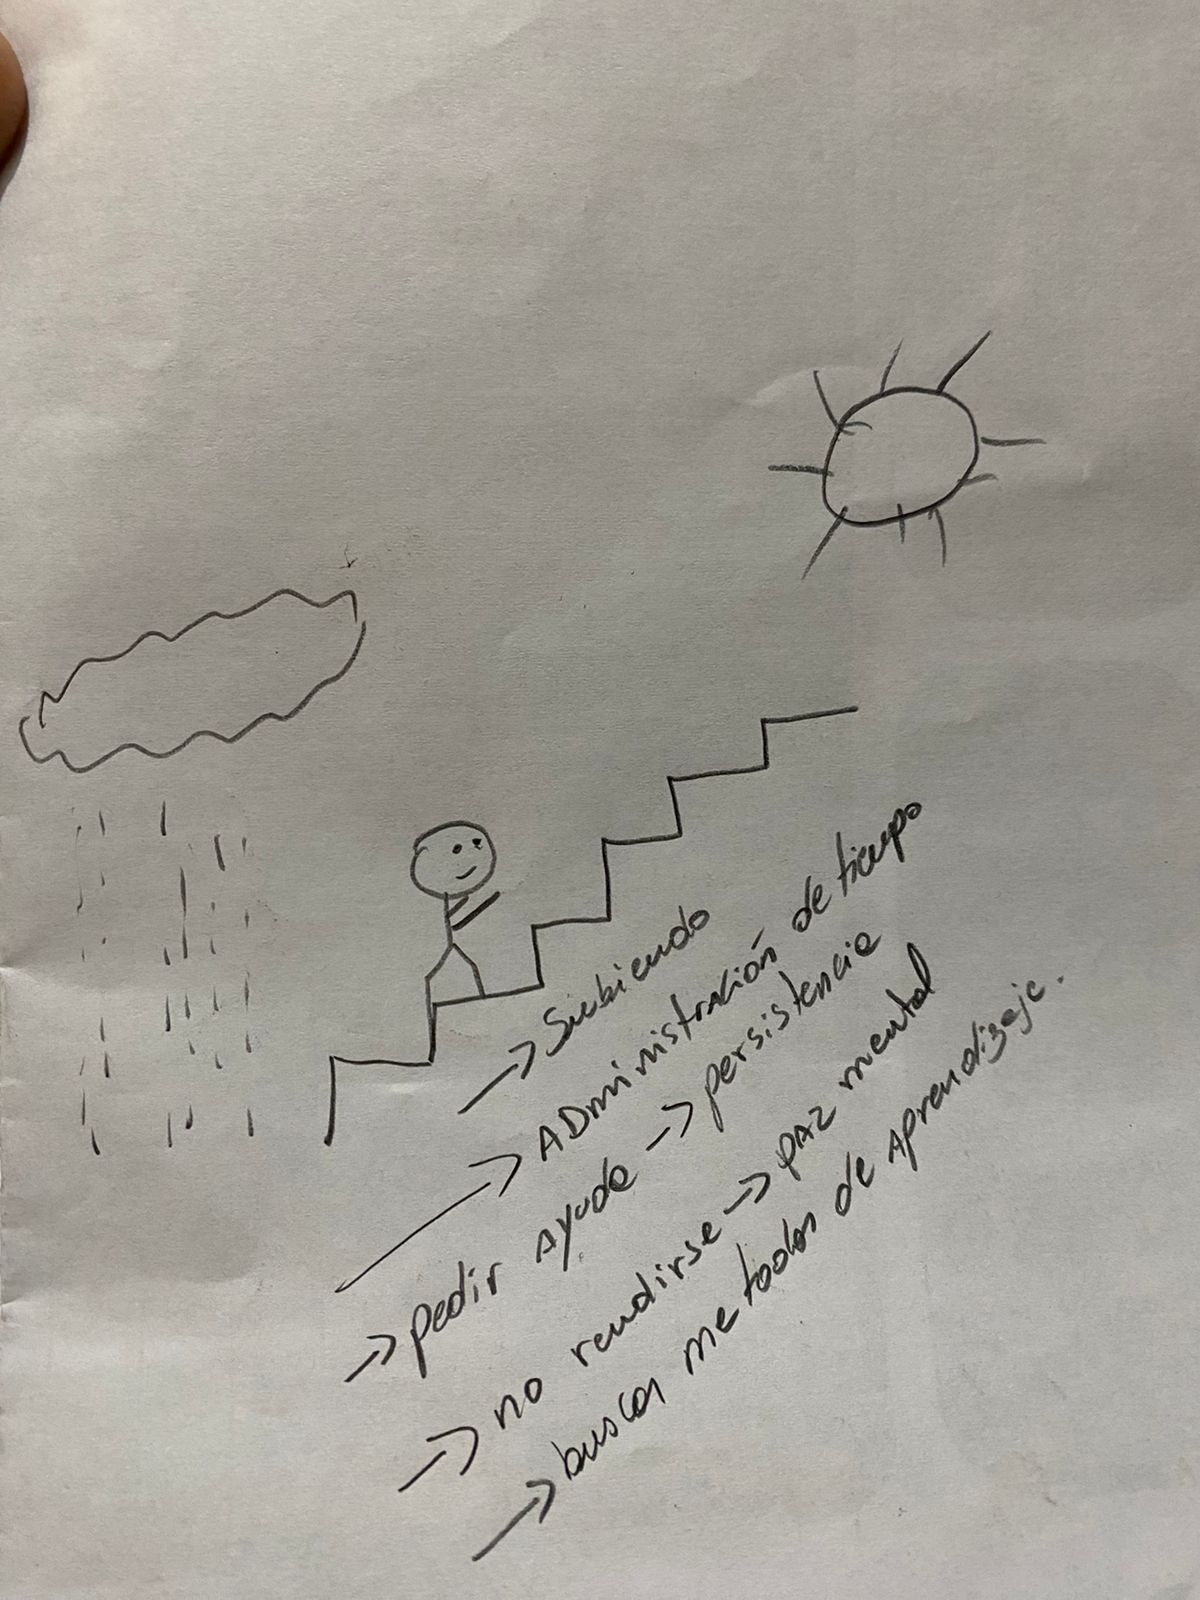 → Subiendo
→ ADministración de tiempo
→ pedir Ayuda → persistencia
→ no rendirse → pAz mental
→ buscar metodos de Aprendizaje.